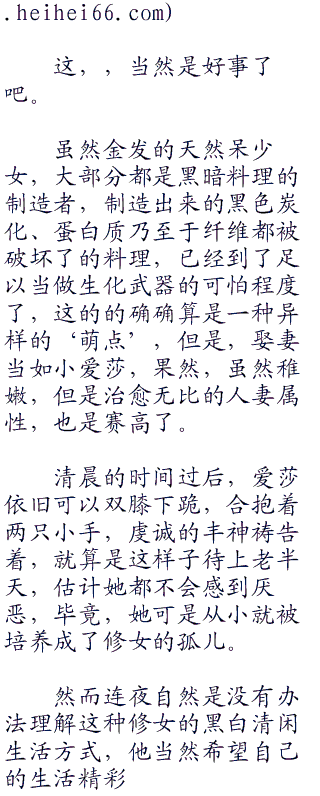 .heihei66.com)
这，，当然是好事了
吧。
虽然金发的天然呆少
女，大部分都是黑暗料理的
制造者，制造出来的黑色炭
化、蛋白质乃至于纤维都被
破坏了的料理，已经到了足
以当做生化武器的可怕程度
了，这的的确确算是一种异
样的‘萌点’，但是，娶妻
当如小爱莎，果然，虽然稚
嫩，但是治愈无比的人妻属
性，也是赛高了。
清晨的时间过后，爱莎
依旧可以双膝下跪，合抱着
两只小手，虔诚的丰神祷告
着，就算是这样子待上老半
天，估计她都不会感到厌
恶，毕竟，她可是从小就被
培养成了修女的孤儿。
然而连夜自然是没有办
法理解这种修女的黑白清闲
生活方式，他当然希望自己
的生活精彩